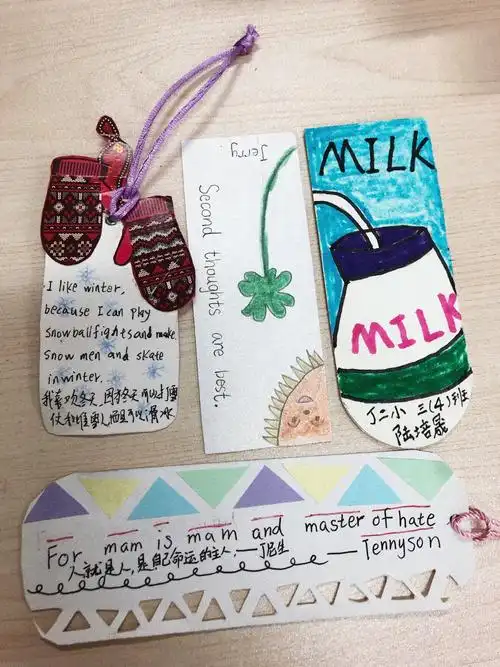 I like winter,
because I can play
snowballfights and make
snow men and skate
in winter.
我喜欢冬天,因为冬天可以打雪
仗和堆雪人而且可以滑冰
Jerry
Second thoughts are best.
MILK
MILK
丁二小 三(4)班
陆培晟
For mam is mam and master of hate
人就是人,是自己命运的主人.——丁尼生
—Tennyson